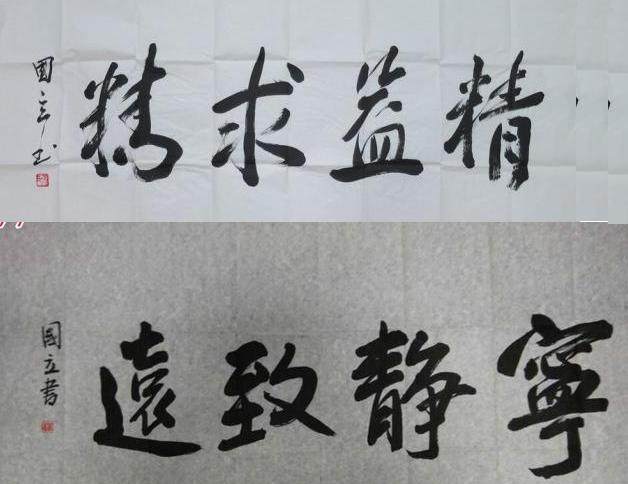 精益求精
国立书
寧静致遠
國立書